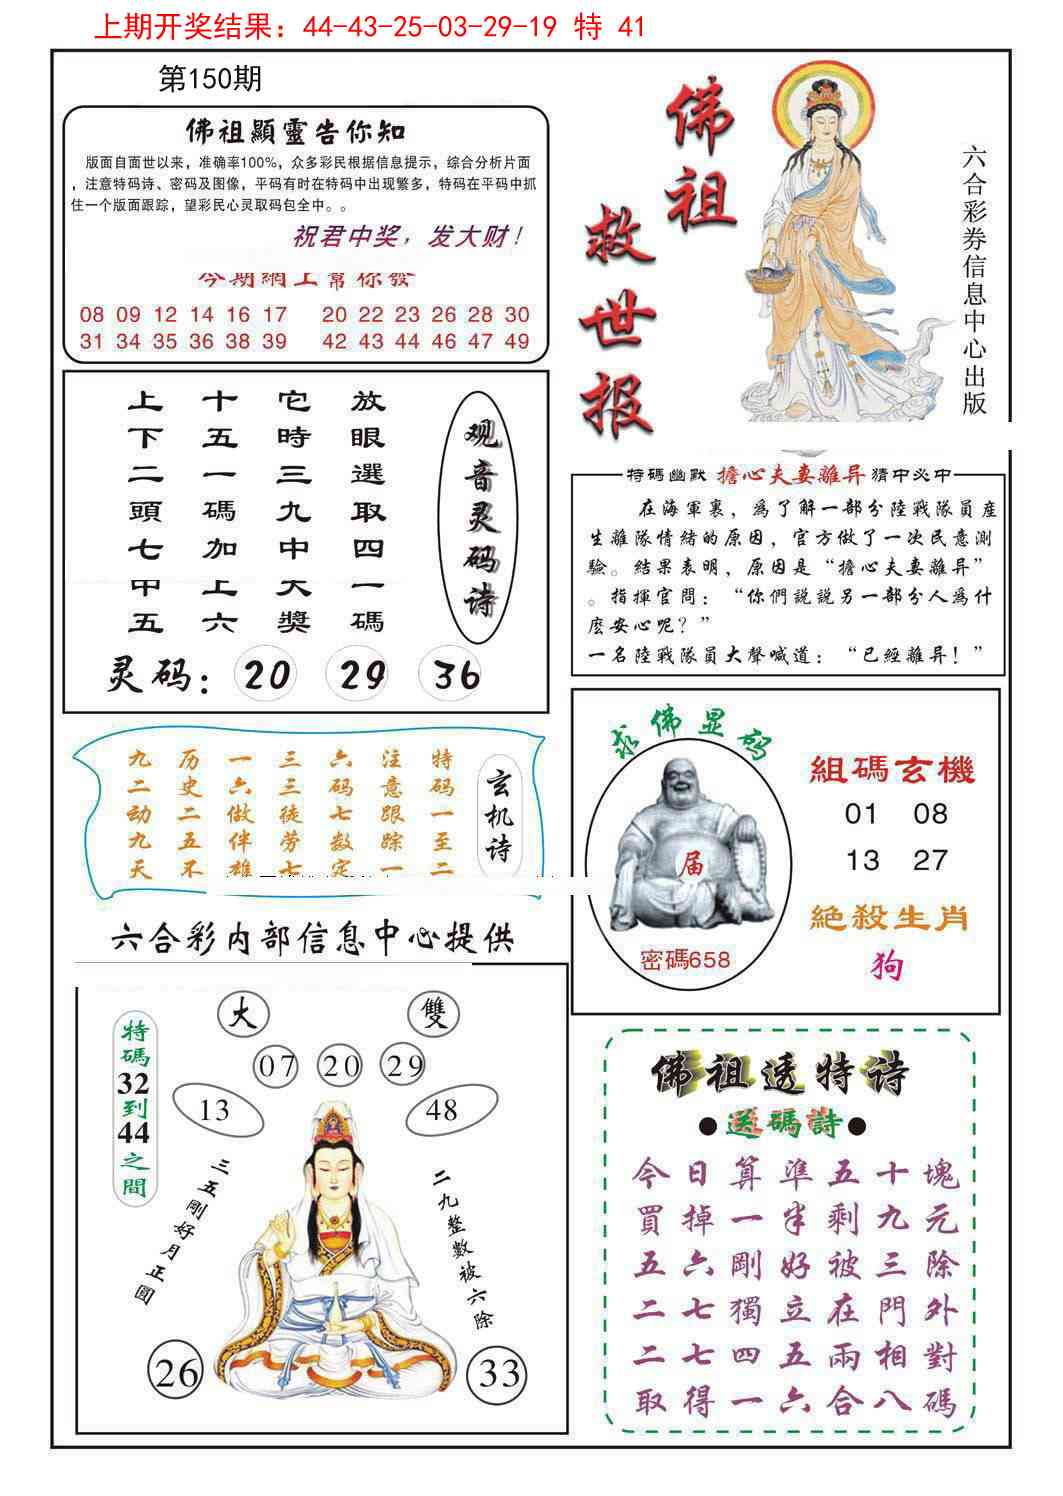 上期开奖结果：44-43-25-03-29-19 特 41
第150期
佛祖顯靈告你知
版面自面世以来，准确率100%，众多彩民根据信息提示，综合分析片面
，注意特码诗、密码及图像，平码有时在特码中出现繁多，特码在平码中抓
住一个版面跟踪，望彩民心灵取码包全中。。
祝君中奖，发大财！
今期網上幫你發
08 09 12 14 16 17 20 22 23 26 28 30
31 34 35 36 38 39 42 43 44 46 47 49
佛祖
救世报
六合彩券信息中心出版
上 十 它 放
下 五 時 眼
二 一 三 選
頭 碼 九 取
七 加 中 四
中 上 大 一
五 六 獎 碼
观音灵码诗
灵码：20 29 36
特碼幽默 擔心夫妻離异 猜中必中
在海軍裏，爲了解一部分陸戰隊員産
生離隊情緒的原因，官方做了一次民意測
驗。結果表明，原因是“擔心夫妻離异”
。指揮官問：“你們説説另一部分人爲什
麽安心呢？”
一名陸戰隊員大聲喊道：“已經離异！”
九 历 一 三 六 注 特
二 史 六 三 码 意 码
动 二 做 徒 七 跟 一
九 五 伴 劳 数 踪 至
天 不 雄 七 定 一 二
玄机诗
求佛显码
届
密碼658
組碼玄機
01 08
13 27
絶殺生肖
狗
六合彩内部信息中心提供
大 雙
07 20 29
13 48
特碼32到44之間
三五剛好月正圓
二九整數被六除
26 33
佛祖透特诗
●送碼詩●
今日算準五十塊
買掉一半剩九元
五六剛好被三除
二七獨立在門外
二七四五兩相對
取得一六合八碼